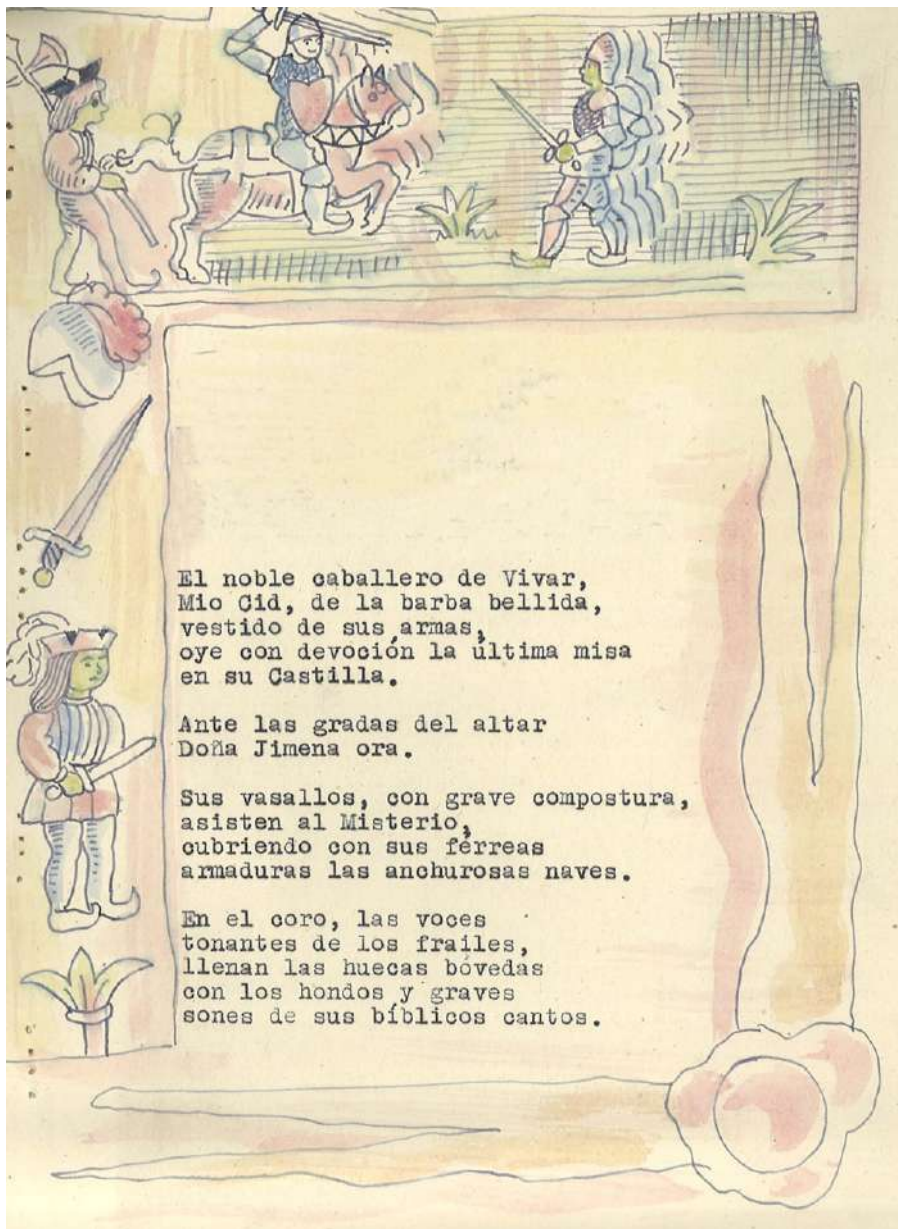 El noble caballero de Vivar,
Mio Cid, de la barba bellida,
vestido de sus armas,
oye con devoción la última misa
en su Castilla.
Ante las gradas del altar
Doña Jimena ora.
Sus vasallos, con grave compostura,
asisten al Misterio,
cubriendo con sus férreas
armaduras las anchurosas naves.
En el coro, las voces
tonantes de los frailes,
llenan las huecas bóvedas
con los hondos y graves
sones de sus bíblicos cantos.